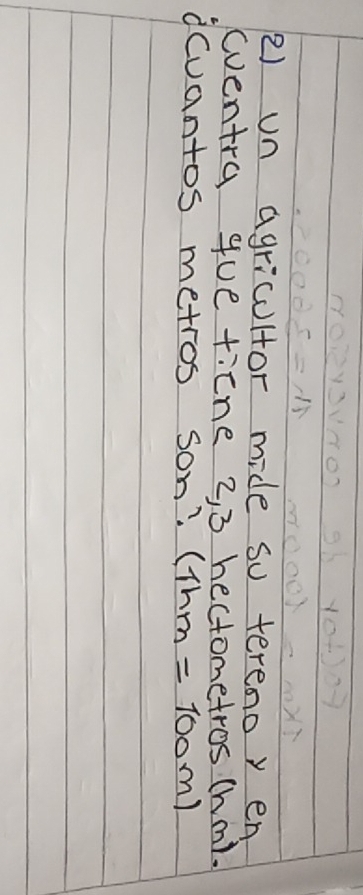 2) un agricultor mide su tereno y en
cuentra que tiene 2,3 hectometros (hm).
¿Cuantos metros son? (1hm = 100m)